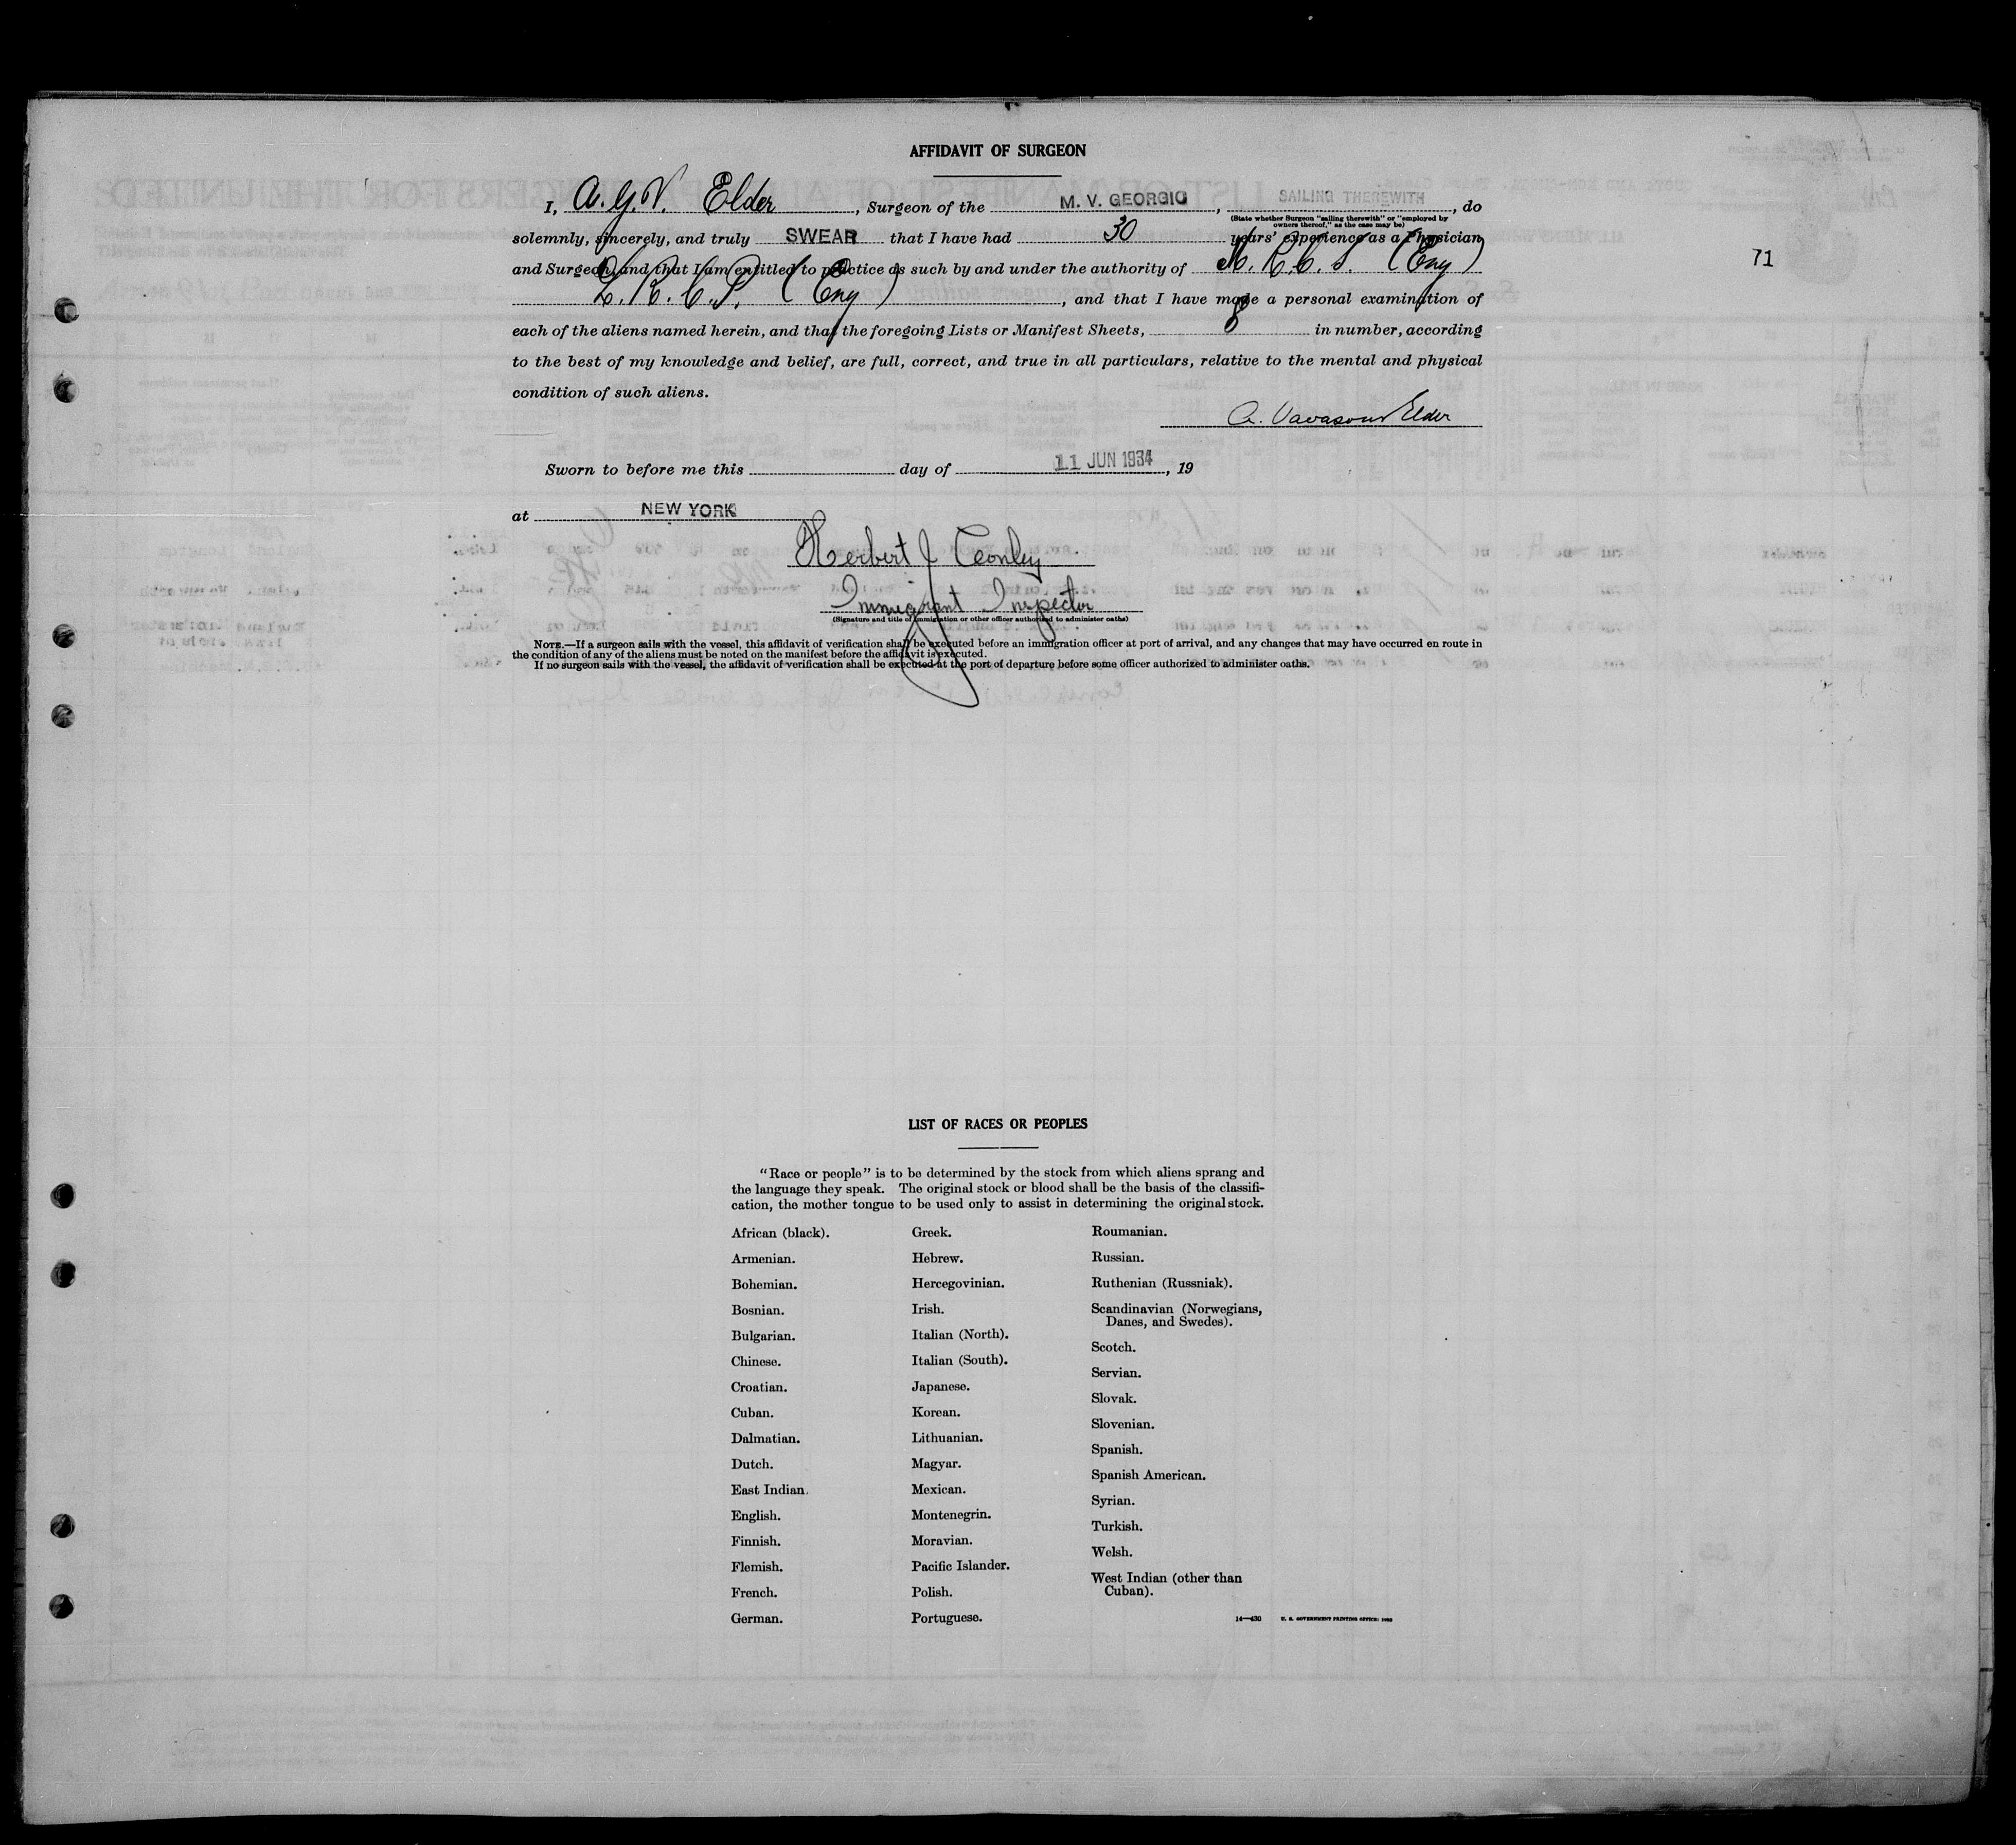 AFFIDAVIT OF SURGEON
I, A. G. V. Elder, Surgeon of the M. V. GEORGIC, SAILING THEREWITH, do
(State whether Surgeon "sailing therewith" or "employed by
owners thereof," as the case may be)
solemnly, sincerely, and truly SWEAR that I have had 30 years' experience as a Physician
and Surgeon, and that I am entitled to practice as such by and under the authority of M. R. C. S. (Eng)
L. R. C. P. (Eng), and that I have made a personal examination of
each of the aliens named herein, and that the foregoing Lists or Manifest Sheets, 8 in number, according
to the best of my knowledge and belief, are full, correct, and true in all particulars, relative to the mental and physical
condition of such aliens.
A. Vavasour Elder
Sworn to before me this day of 11 JUN 1934, 19
at NEW YORK
Herbert J Conley
Immigrant Inspector
(Signature and title of immigration or other officer authorized to administer oaths)
NOTE.—If a surgeon sails with the vessel, this affidavit of verification shall be executed before an immigration officer at port of arrival, and any changes that may have occurred en route in
the condition of any of the aliens must be noted on the manifest before the affidavit is executed.
If no surgeon sails with the vessel, the affidavit of verification shall be executed at the port of departure before some officer authorized to administer oaths.
71
LIST OF RACES OR PEOPLES
"Race or people" is to be determined by the stock from which aliens sprang and
the language they speak. The original stock or blood shall be the basis of the classifi-
cation, the mother tongue to be used only to assist in determining the original stock.
African (black).
Armenian.
Bohemian.
Bosnian.
Bulgarian.
Chinese.
Croatian.
Cuban.
Dalmatian.
Dutch.
East Indian.
English.
Finnish.
Flemish.
French.
German.
Greek.
Hebrew.
Hercegovinian.
Irish.
Italian (North).
Italian (South).
Japanese.
Korean.
Lithuanian.
Magyar.
Mexican.
Montenegrin.
Moravian.
Pacific Islander.
Polish.
Portuguese.
Roumanian.
Russian.
Ruthenian (Russniak).
Scandinavian (Norwegians,
Danes, and Swedes).
Scotch.
Servian.
Slovak.
Slovenian.
Spanish.
Spanish American.
Syrian.
Turkish.
Welsh.
West Indian (other than
Cuban).
14—430 U. S. GOVERNMENT PRINTING OFFICE: